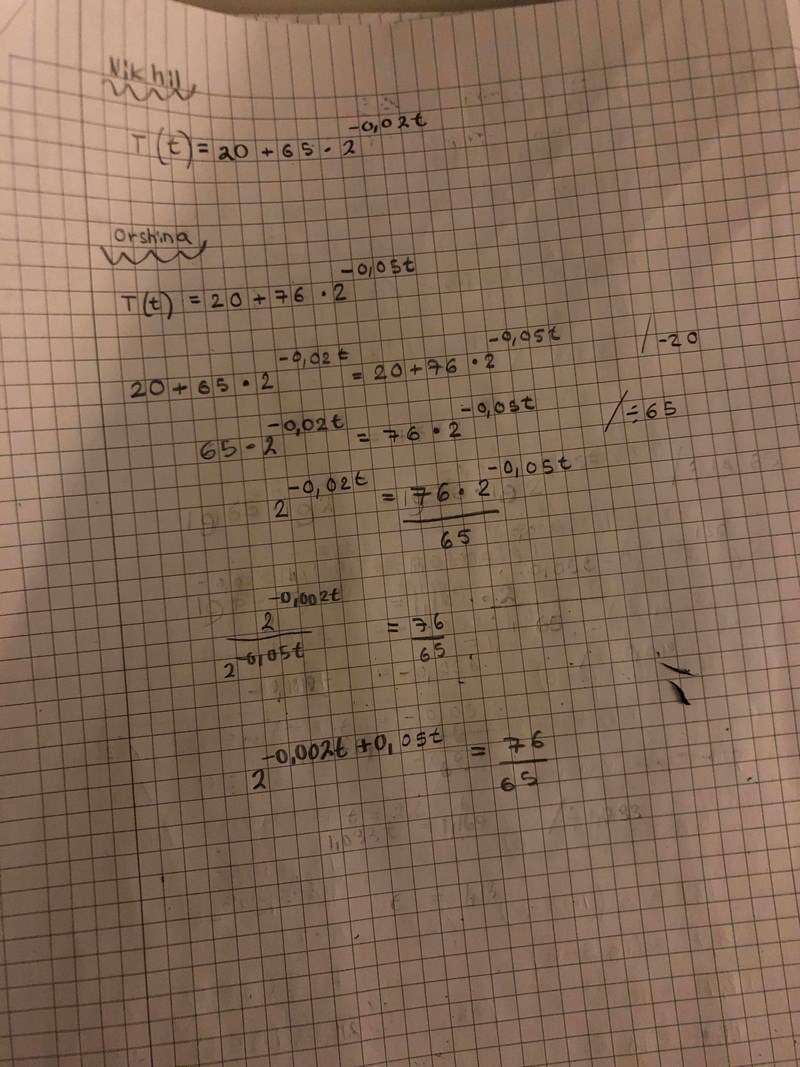 Nikhil
T(t) = 20 + 65 · 2^-0,02t
Orshina
T(t) = 20 + 76 · 2^-0,05t
20 + 65 · 2^-0,02t = 20 + 76 · 2^-0,05t /-20
65 · 2^-0,02t = 76 · 2^-0,05t /÷65
2^-0,02t = 76 · 2^-0,05t / 65
2^-0,002t / 2^-0,05t = 76/65
2^-0,002t + 0,05t = 76/65